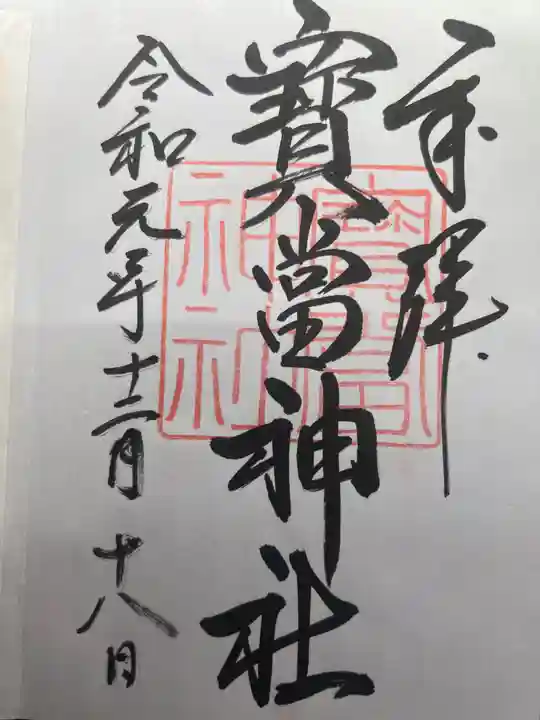 奉拝
寳當神社
令和元年十二月十八日
寳當
神社